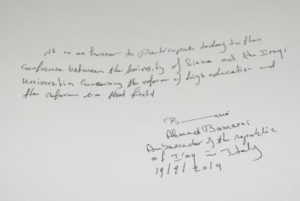 it is an honour to participate today in this
conference between the University of Siena and the Iraqi
Universities concerning the reform of high education and
the reform in that field
Ahmad Bamarni
Ambassador of the republic
of Iraq in Italy